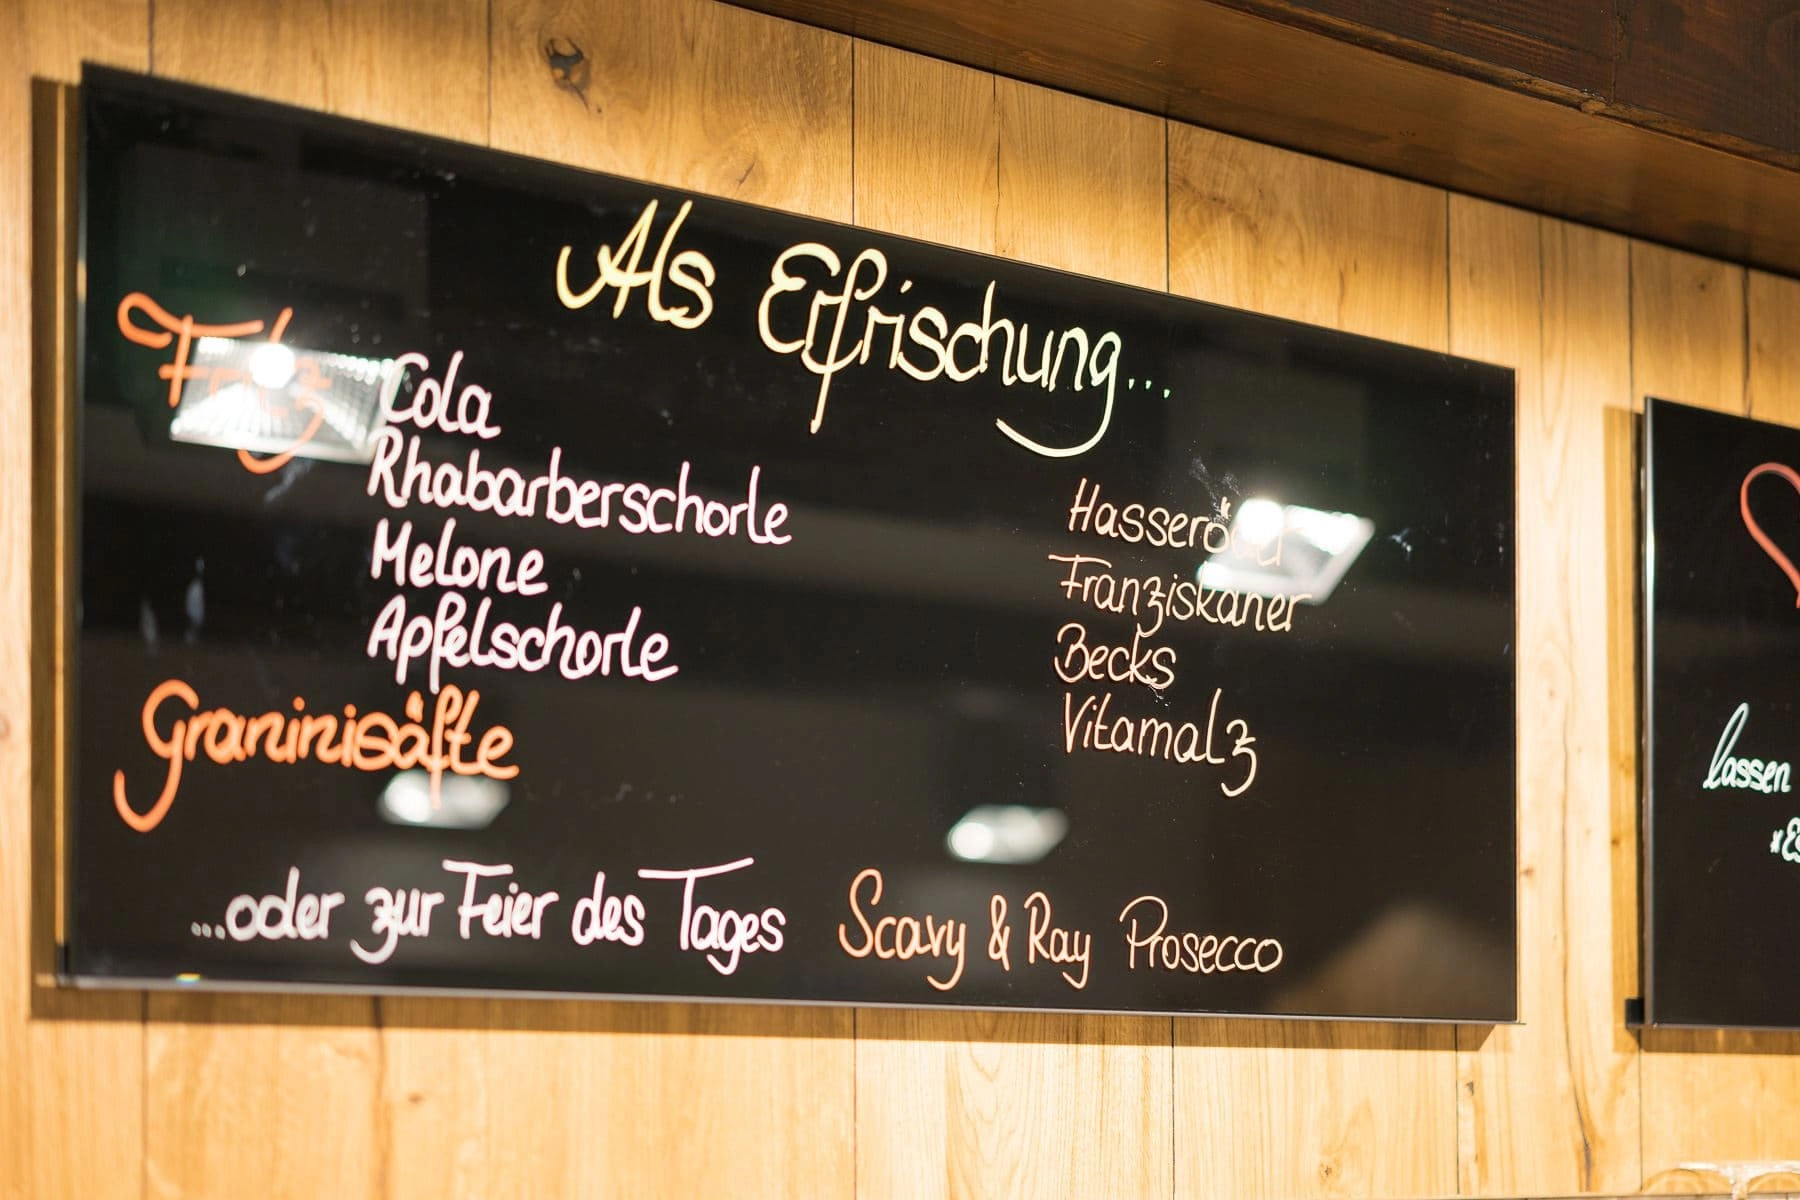 Als Erfrischung...
Fritz Cola
Rhabarberschorle
Melone
Apfelschorle
Graninisäfte
Hasseröder
Franziskaner
Becks
Vitamalz
...oder zur Feier des Tages Scavy & Ray Prosecco
lassen